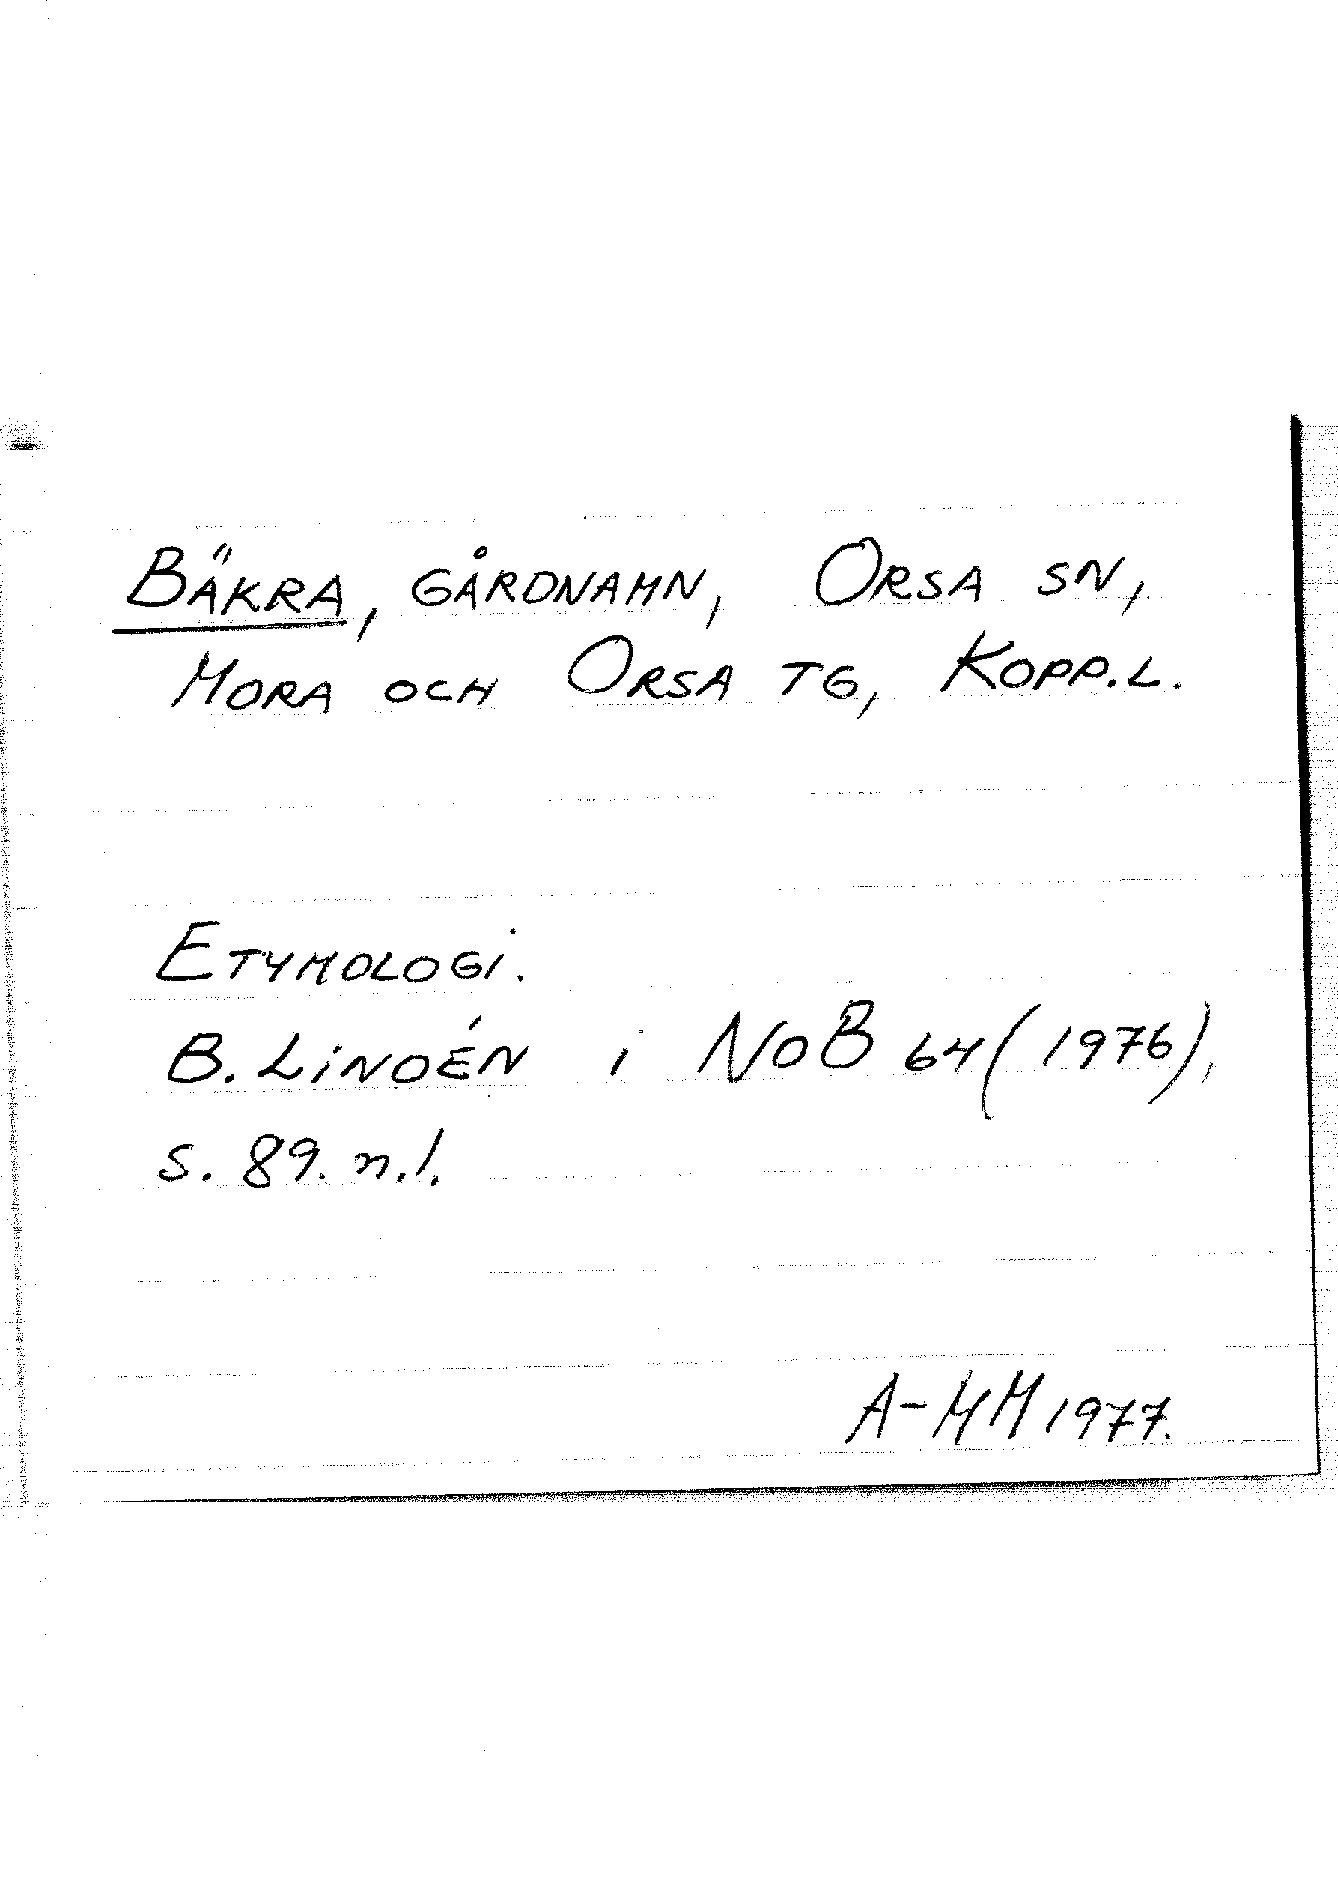 BÄKRA, GÅRDNAMN, ORSA SN,
MORA OCH ORSA TG, KOPP.L.
ETYMOLOGI.
B. LINDÉN i NOB 64 (1976),
s. 89. n.l.
A-MM 1977.